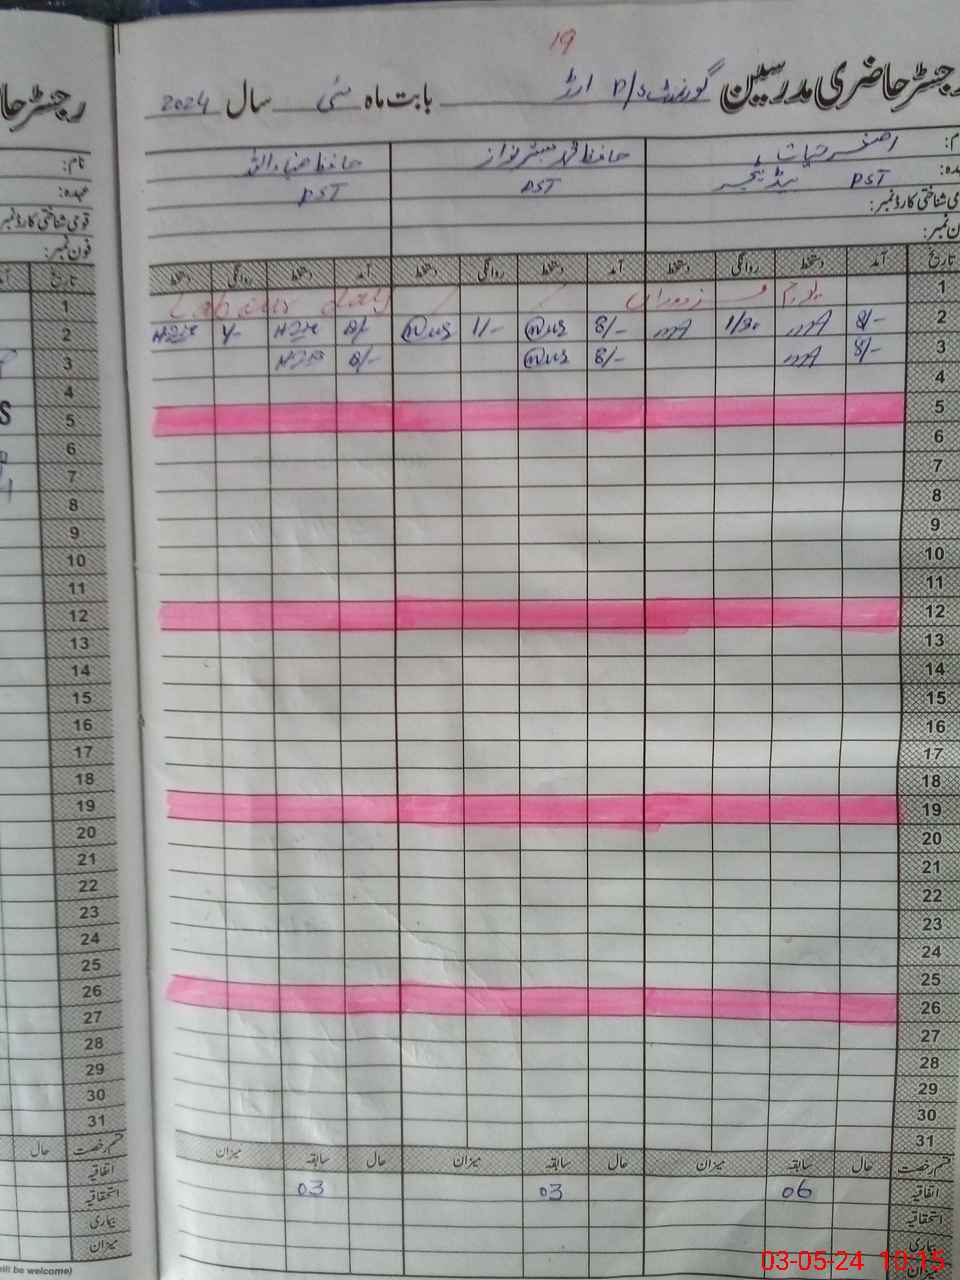 19
رجسٹر حاضری مدرسین گورنمنٹ P/S بابت ماہ مئی سال 2024
رجسٹر حا
نام: اصغر حیات حافظ ضیاء اللہ
عہدہ: PST ہیڈ ٹیچر PST PST
قومی شناختی کارڈ نمبر:
فون نمبر:
تاریخ آمد دستخط روانگی دستخط آمد دستخط روانگی دستخط آمد دستخط روانگی دستخط
1 یوم Labour day
2 8/- 1/30 8/- 1/- 8/-
3 8/- 8/- 8/-
4
5
6
7
8
9
10
11
12
13
14
15
16
17
18
19
20
21
22
23
24
25
26
27
28
29
30
31
قسم رخصت حال سابقہ میزان حال سابقہ میزان حال سابقہ میزان
اتفاقیہ 06 03 03
استحقاقیہ
بیماری
میزان
نام:
عہدہ:
قومی شناختی کارڈ نمبر
فون نمبر:
تاریخ
1
2
3
4
5
6
7
8
9
10
11
12
13
14
15
16
17
18
19
20
21
22
23
24
25
26
27
28
29
30
31
قسم رخصت حال
اتفاقیہ
استحقاقیہ
بیماری
میزان
will be welcome)
03-05-24 10:15